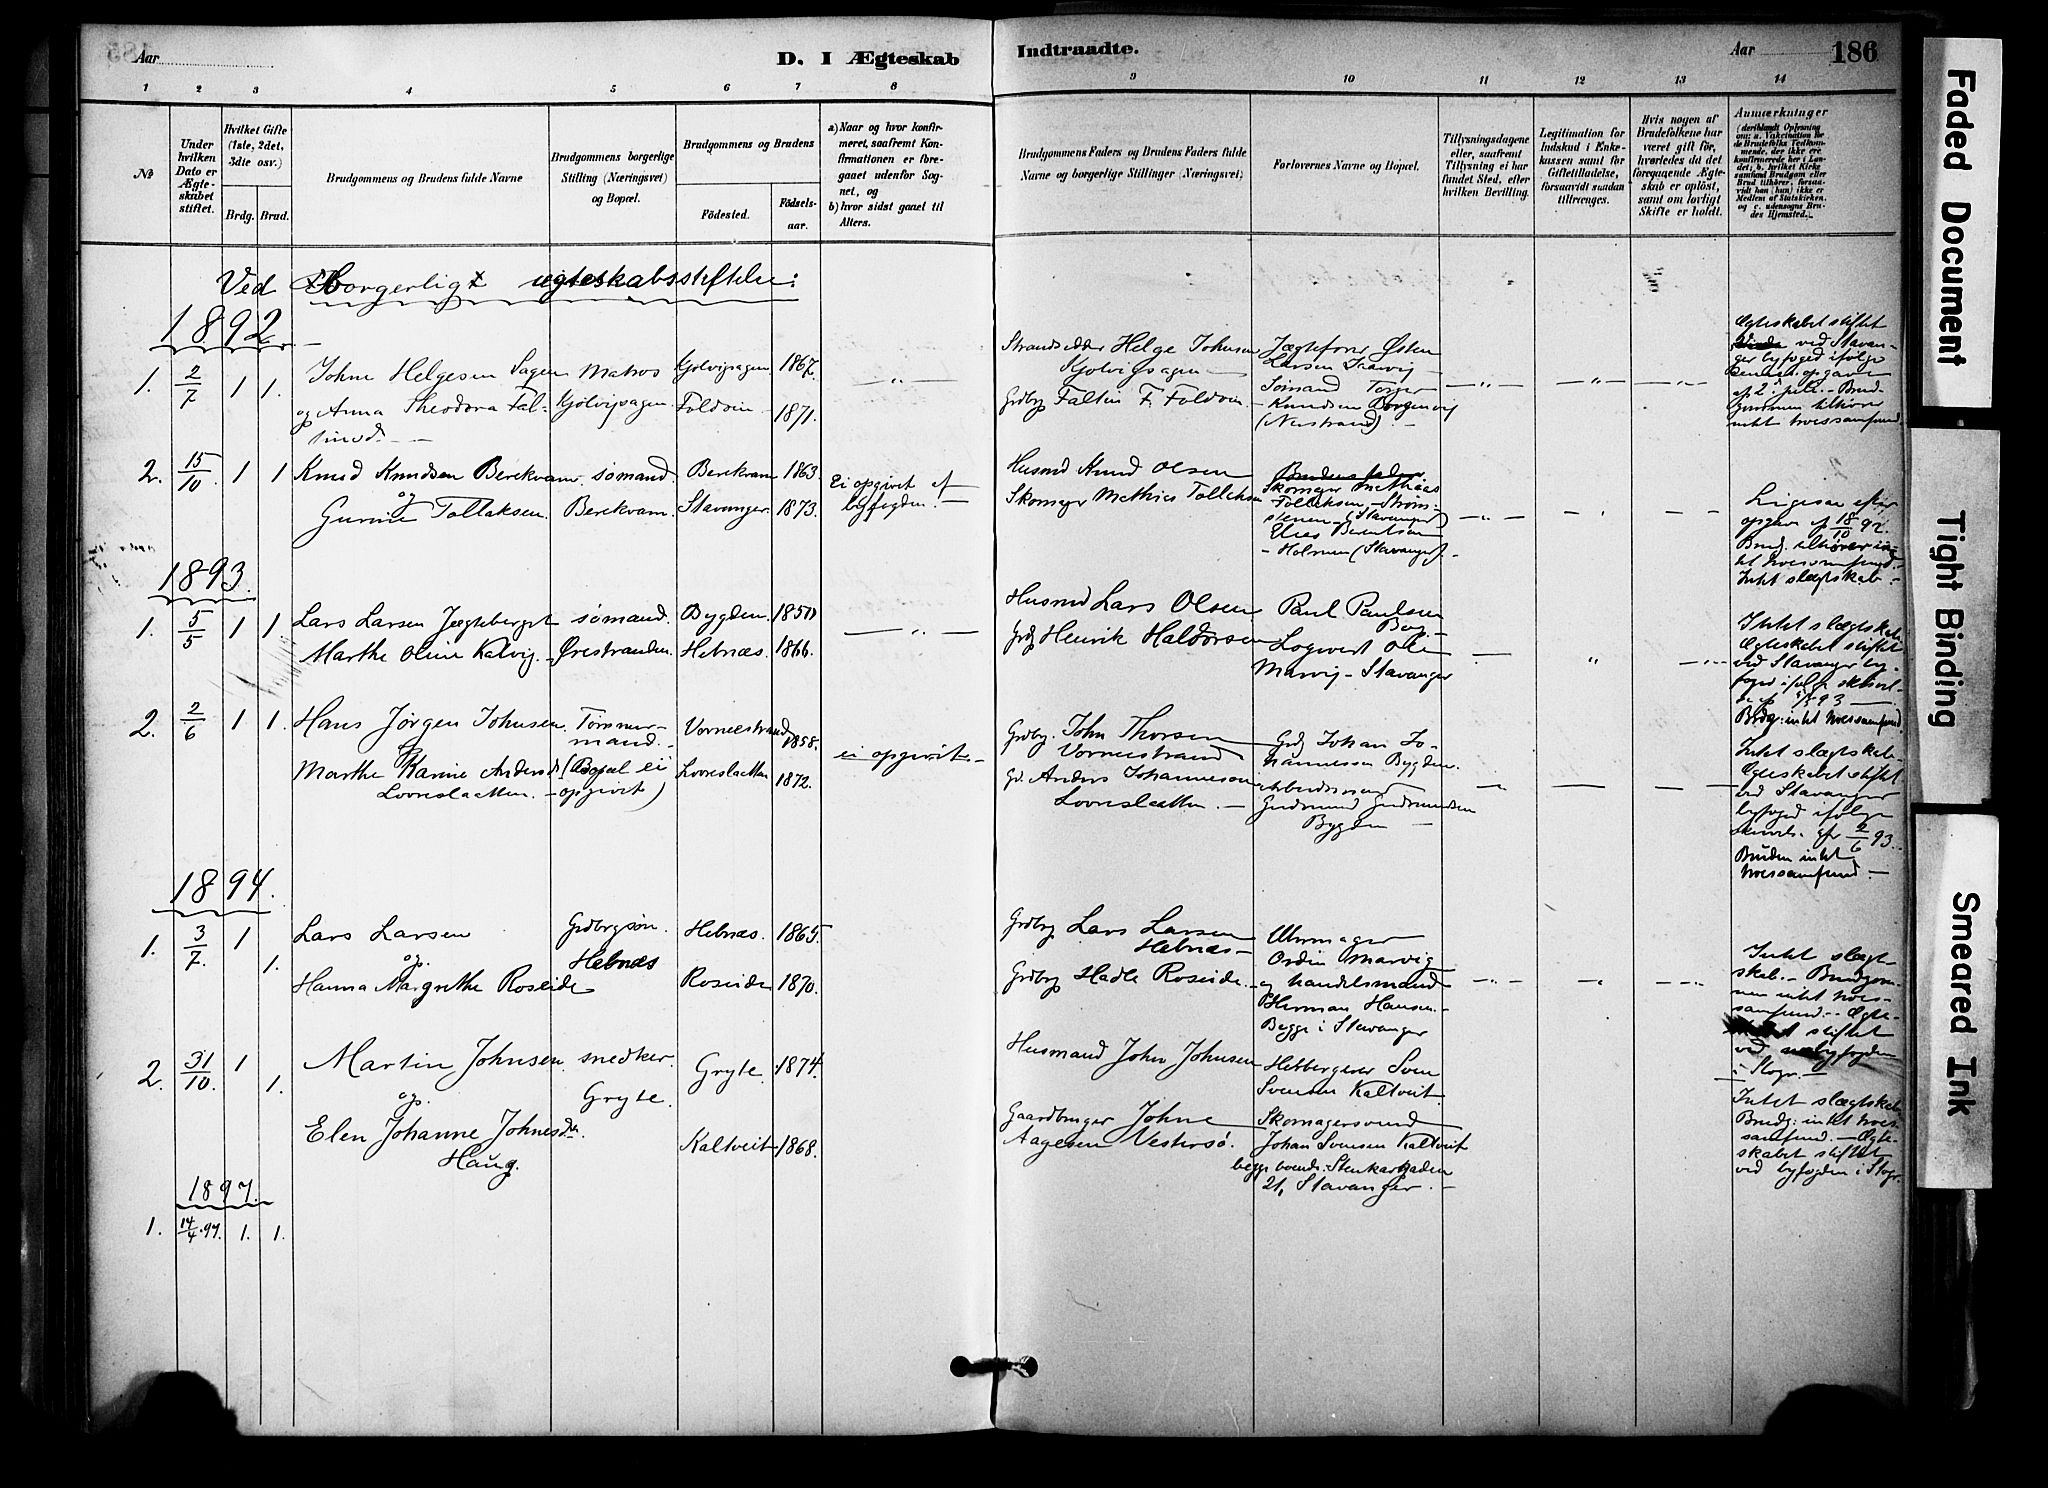 Aar
D. I Ægteskab
Indtraadte.
Aar
186
1 2 3 4 5 6 7 8 9 10 11 12 13 14
No
Under hvilken Dato er Ægteskabet stiftet.
Hvilket Gifte (1ste, 2det, 3die osv.)
Brdg. Brud.
Brudgommens og Brudens fulde Navne
Brudgommens borgerlige Stilling (Næringsvei) og Bopæl.
Brudgommens og Brudens
Födested.
Födselsaar.
a) Naar og hvor konfirmeret, saafremt Konfirmationen er foregaaet udenfor Sognet, og
b) hvor sidst gaaet til Alters.
Brudgommens Faders og Brudens Faders fulde Navne og borgerlige Stillinger (Næringsvei)
Forlovernes Navne og Bopæl.
Tillysningsdagene eller, saafremt Tillysning ei har fundet Sted, efter hvilken Bevilling.
Legitimation for Indskud i Enkekassen samt for Giftetilladelse, forsaavidt saadan tiltrænges.
Hvis nogen af Brudefolkene har været gift før, hvorledes da det foregaaende Ægteskab er oplöst, samt om lovligt Skifte er holdt.
Anmærkninger
Ved Borgerligt ægteskabsstiftelse:
1892
1. 2/7 1 1.
Johne Helgesen Sagen
og Anna Theodora Fal-
Matros
Kjølvigsagen
Kjølvigsagen 1867.
Foldøen 1871.
Strandsidder Helge Johnsen
Kjølvigsagen
Grdbrg Falten F. Foldøen
Jægtefører Østen
Larsen
Sømand Torger
Knudsen Borgenvig
(Nerstrand).
Ægteskabet stiftet
ved Stavan-
ger byfoged ifølge
2. 15/10 1 1
Knud Knudsen Berekvam
og
Gurine Tollaksen.
sømand.
Berekvam.
Berekvam 1863
Stavanger. 1873.
Ei opgivet af
byfogden.
Husmd Knud Olsen
Skomager Mathias Tollaksen
Skomager Mathias
Tollaksen, Strøm-
stenen (Stavanger)
Elias Berentsen
Holmen (Stavanger).
Ligesaa efter
opgav af 18/10 92.
Intet slægtskab
1893.
1. 5/5 1 1.
Lars Larsen Jægteberget
Marthe Oline Kalvig.
sømand.
Ørestranden.
Bygden. 1850
Hebnæs. 1866.
Husmd Lars Olsen
Grdbr Henrik Haldorsen
Paul Paulsen
Boy
Logvert Ole
Marvig - Stavanger
Intet slægtskab.
Ægteskabet stiftet
ved Stavanger by-
2. 2/6 1 1.
Hans Jørgen Johnsen
og
Marthe Karine Andersd
Lovreslaetten.
Tømmer-
mand.
(Bopæl ei
opgivet)
Vorneestrand 1858.
Lovreslaetten 1872.
ei opgivet.
Grdbr. John Thorsen
Vorneestrand
Gr. Anders Johannesen
Lovreslaetten.
Grdbr Johan Jo-
hannessen Bygden.
Arbeidsmand
Gudmund Gudmundsen
Bygden
Intet slægtskab.
Ægteskabet stiftet
ved Stavanger
byfoged ifølge
2/6 93.
Bruden intet
troessamfund.
1894.
1. 3/7. 1 1.
Lars Larsen
og.
Hanna Margrethe Roseide
Grdbrgsøn.
Hebnæs
Hebnæs. 1865.
Roseide 1870.
Grdbrg Lars Larsen
Hebnæs
Grdbrg Hadle Roseide
Uhrmager
Ordin Marvig
og handelsmand
Herman Hansen.
Begge i Stavanger
Intet slægt-
skab. Brudgom-
men intet troes-
samfund. Ægte-
skabet stiftet
ved byfogden
i Stvgr.
2. 31/10. 1 1.
Martin Johnsen
og.
Elen Johanne Johnesdtr.
Haug.
snedker.
Gryte.
Gryte. 1874.
Kaltveit 1868.
Husmand John Johnsen
Gaardbruger Johne
Aagesen Vestersø.
Herbergerer Sven
Svensen Kaltveit.
Skomagersvend
Johan Svensen Kaltveit
begge boende: Stenkargaden
21, Stavanger.
Intet slægtskab
Brudg: intet troes-
samfund. Ægte-
skabet stiftet
ved byfogden i Stvgr.
1897.
1. 14/4.97. 1. 1.
Faded Document
Tight Binding
Smeared Ink